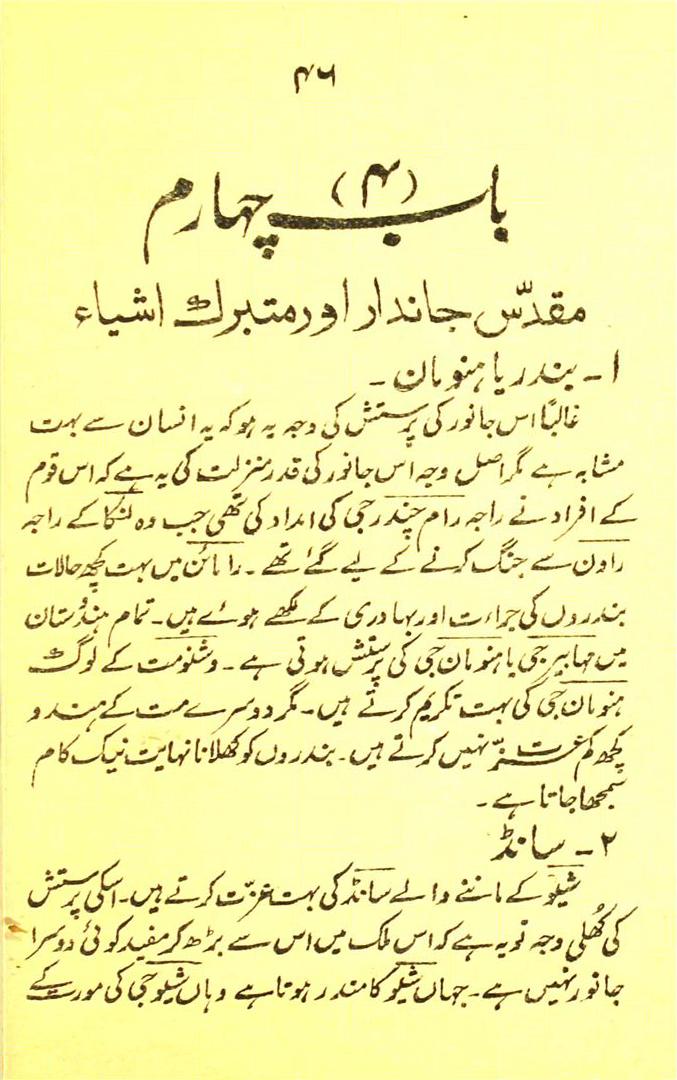 ۴۶
باب (۴) چہارم
مقدّس جاندار اور متبرک اشیاء
۱۔ بندر یا ہنومان۔
غالباً اس جانور کی پرستش کی وجہ یہ ہو کہ یہ انسان سے بہت
مشابہ ہے مگر اصل وجہ اس جانور کی قدر منزلت کی یہ ہے کہ اس قوم
کے افراد نے راجہ رام چندر جی کی امداد کی تھی جب وہ لنکا کے راجہ
راون سے جنگ کرنے کے لیے گئے تھے۔ رامائن میں بہت کچھ حالات
بندروں کی جراءت اور بہادری کے لکھے ہوئے ہیں۔ تمام ہندُستان
میں مہابیر جی یا ہنومان جی کی پرستش ہوتی ہے۔ وشنومت کے لوگ
ہنومان جی کی بہت تکریم کرتے ہیں۔ مگر دوسرے مت کے ہندو
کچھ کم عزّت نہیں کرتے ہیں۔ بندروں کو کھلانا نہایت نیک کام
سمجھا جاتا ہے۔
۲۔ سانڈ
شیو کے ماننے والے سانڈ کی بہت عزّت کرتے ہیں۔ اسکی پرستش
کی کُھلی وجہ تو یہ ہے کہ اس ملک میں اس سے بڑھ کر مفید کوئی دوسرا
جانور نہیں ہے۔ جہاں شیو کا مندر ہوتا ہے وہاں شیو جی کی مورت کے